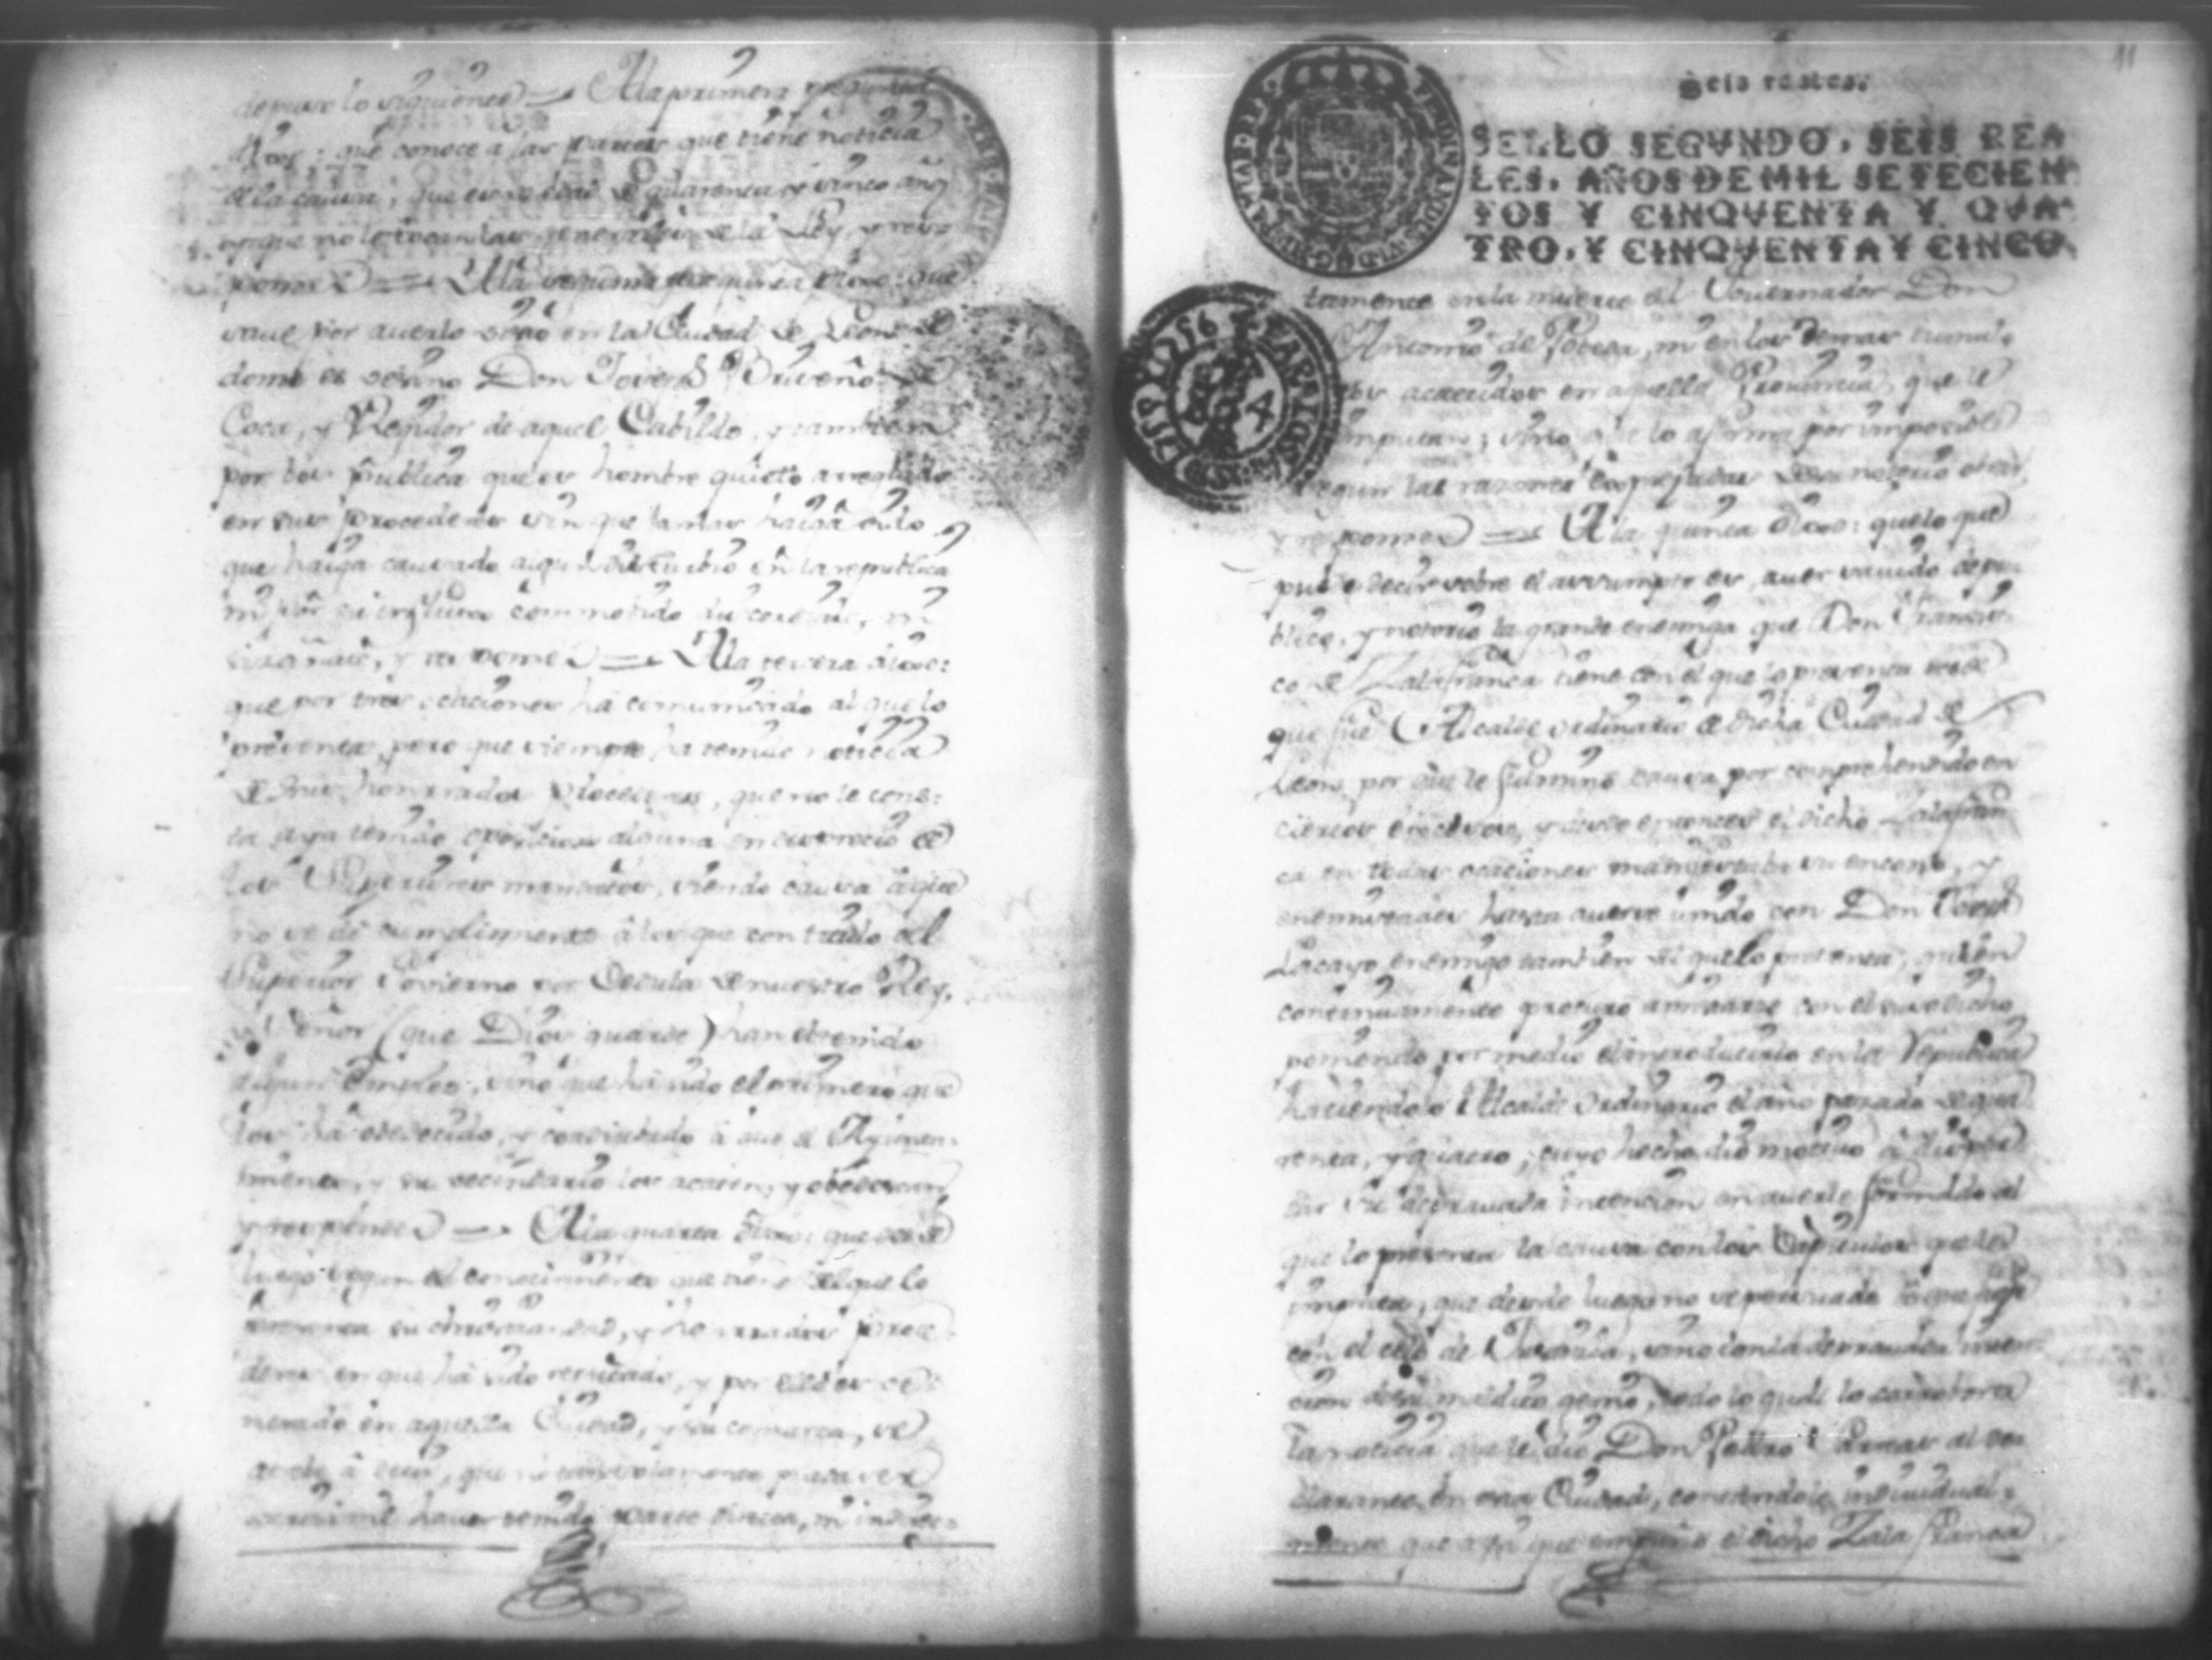 depuso lo siguiente = A la primera pregunta
dixo: que conoce a las partes que tiene noticia
de la causa, que es de edad de quarenta y cinco añ
y que no le tocan las generales de la Ley, y res
ponde = A la segunda pregunta dixo: que
save por averlo en la Ciudad de Leon de
donde es vecino Don Joseph Briceño de
Coca, y Regidor de aquel Cabildo, y tambien
por voz publica que es hombre quieto arreglado
en sus procederes sin que jamas haiga sido
que haiga causado algun disturbio en la republica
ni por su influxo commovido discordias, ni
zizañas, y responde = A la tersera dixo:
que por tres ocaciones ha comunicado al que lo
presenta, pero que siempre ha tenido noticia
de sus honrrados procederes, que no le cons:
ta aya tenido oposicion alguna en desprecio de
los Superiores mandatos, siendo causa a que
no se dé cumplimiento â los que con titulo del
Superior Govierno por Cedula de nuestro Rey,
Señor (que Dios guarde) han obtenido
algun Empleo, sino que ha sido el primero que
los ha obedecido, y coadiubado â que el Ayunta
miento, y su vecindario los acaten, y obedescan
y responde = A la quarta dixo: que desde
luego segun el conocimiento que tiene del que lo
presenta su christiandad, y honrrados proce
deres en que ha sido reputado, y por ellos es ve
nerado en aquella Ciudad, y su comarca, se
â decir, que no tan solamente
haver tenido parte directa, ni indirec
11
Seis reales.
SELLO SEGVNDO, SEIS REA
LES, AÑOS DE MIL SETECIEN
TOS Y CINQVENTA Y QVA
TRO, Y CINQVENTA Y CINCO
tamente en la muerte del Governador Don
Antonio de Poveda, ni en los demas tumul
tos acaecidos en aquella Provincia, que le
imputan; sino que lo afirma por imposible
segun las razones expresadas
y responde = A la quinta dixo: que lo que
puede decir sobre el assumpto es, aver savido de pu
blico, y notorio la grande enemiga que Don Francis
co de Zalafranca tiene con el que lo presenta desde
que fue Alcalde ordinario de dicha Ciudad de
Leon, por que le fulminó causa por comprehendido en
ciertos excesos, y desde entonces el dicho Zalafran
ca en todas ocaciones manifestaba su encono, y
enemistades hasta averse unido con Don Joseph
Lacayo enemigo tambien del que lo presenta, quien
continuamente procuro amistarse con el suso dicho
poniendo por medio el introducirlo en la Republica
haciendolo Alcalde ordinario el año pasado de qua
renta, y quatro, cuyo hecho dio motivo â
tar su depravada intencion en averle formado al
que lo presenta la causa con los Capitulos que le
imputa, que desde luego no se persuade a que fuese
con el celo de Justicia, sino con la depravada inten
cion de su maldito genio, todo lo qual lo corrobora
la noticia que le dio Don Pedro al de
clarante en esta Ciudad, contandole individual
mente que el dicho Zalafranca